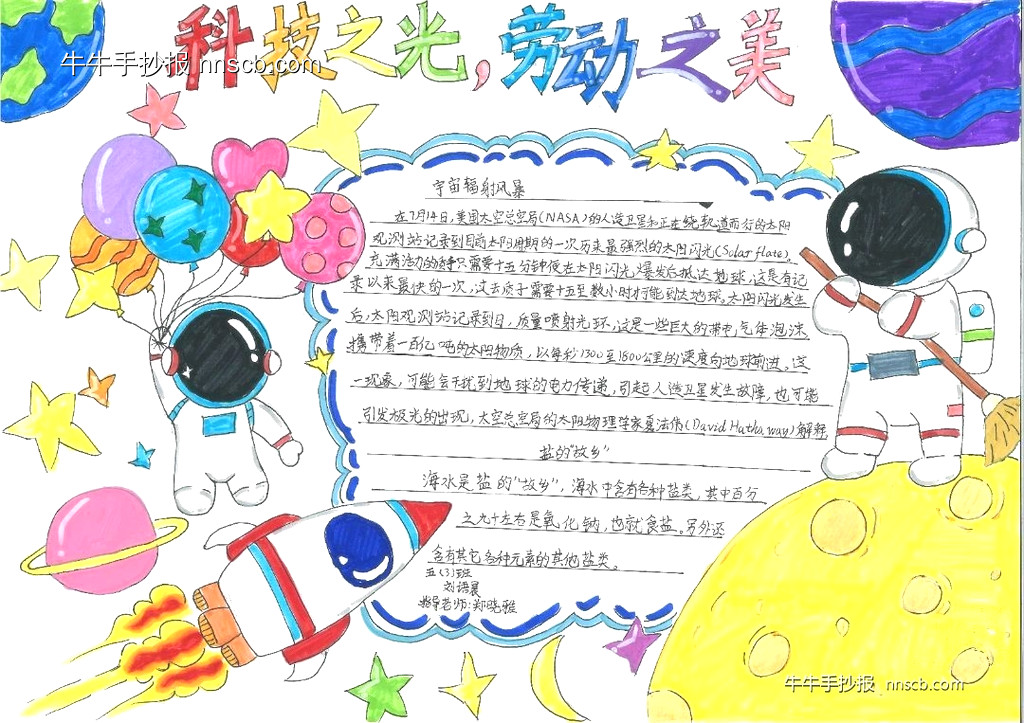 科技之光,劳动之美
牛牛手抄报 nnscb.com
宇宙辐射风暴
在7月14日,美国太空总空局(NASA)的人造卫星和正在绕轨道而行的太阳
观测站记录到目前太阳周期的一次历来最强烈的太阳闪光(Solar flate),
充满活力的质子只需要十五分钟便在太阳闪光爆发后抵达地球,这是有记
录以来最快的一次,过去质子需要十五至数小时才能到达地球。太阳闪光发生
后,太阳观测站记录到日,质量喷射光环,这是一些巨大的带电气体泡沫
携带着一百亿吨的太阳物质,以每秒1300至1800公里的速度向地球前进。这
一现象,可能会干扰到地球的电力传递,引起人造卫星发生故障,也可能
引发极光的出现,太空总空局的太阳物理学家夏法伟(David Hathaway)解释
盐的"故乡"
海水是盐的"故乡",海水中含有各种盐类,其中百分
之九十左右是氧化钠,也就食盐。另外还
含有其它各种元素的其他盐类。
五(3)班
刘语晨
指导老师:郑晓雅
牛牛手抄报 nnscb.com